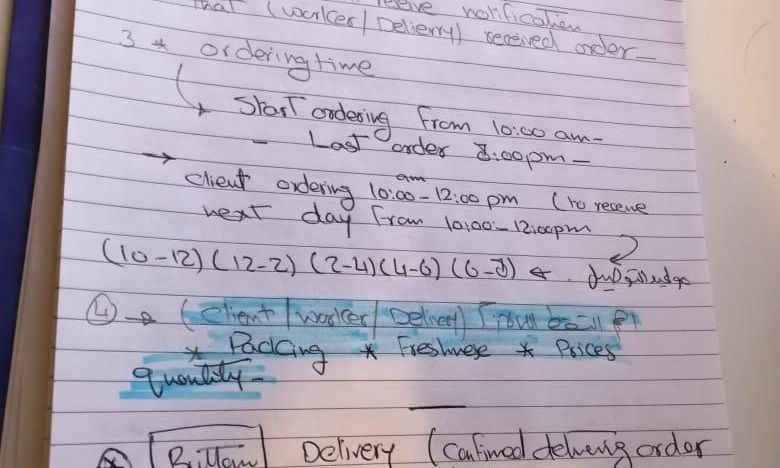 that (worker/Delierry) received order-
notification
3 * ordering time
Start ordering from 10:00 am-
- Last order 8:00pm-
→ client ordering 10:00am-12:00 pm (to receve
next day from 10,00-12,00pm
(10-12) (12-2) (2-4) (4-6) (6-8)
④ → (Client/worker/Delivery)
* Packing * Freshnese * Prices
quantity-
Buttom Delivery (Confirmed delivering order